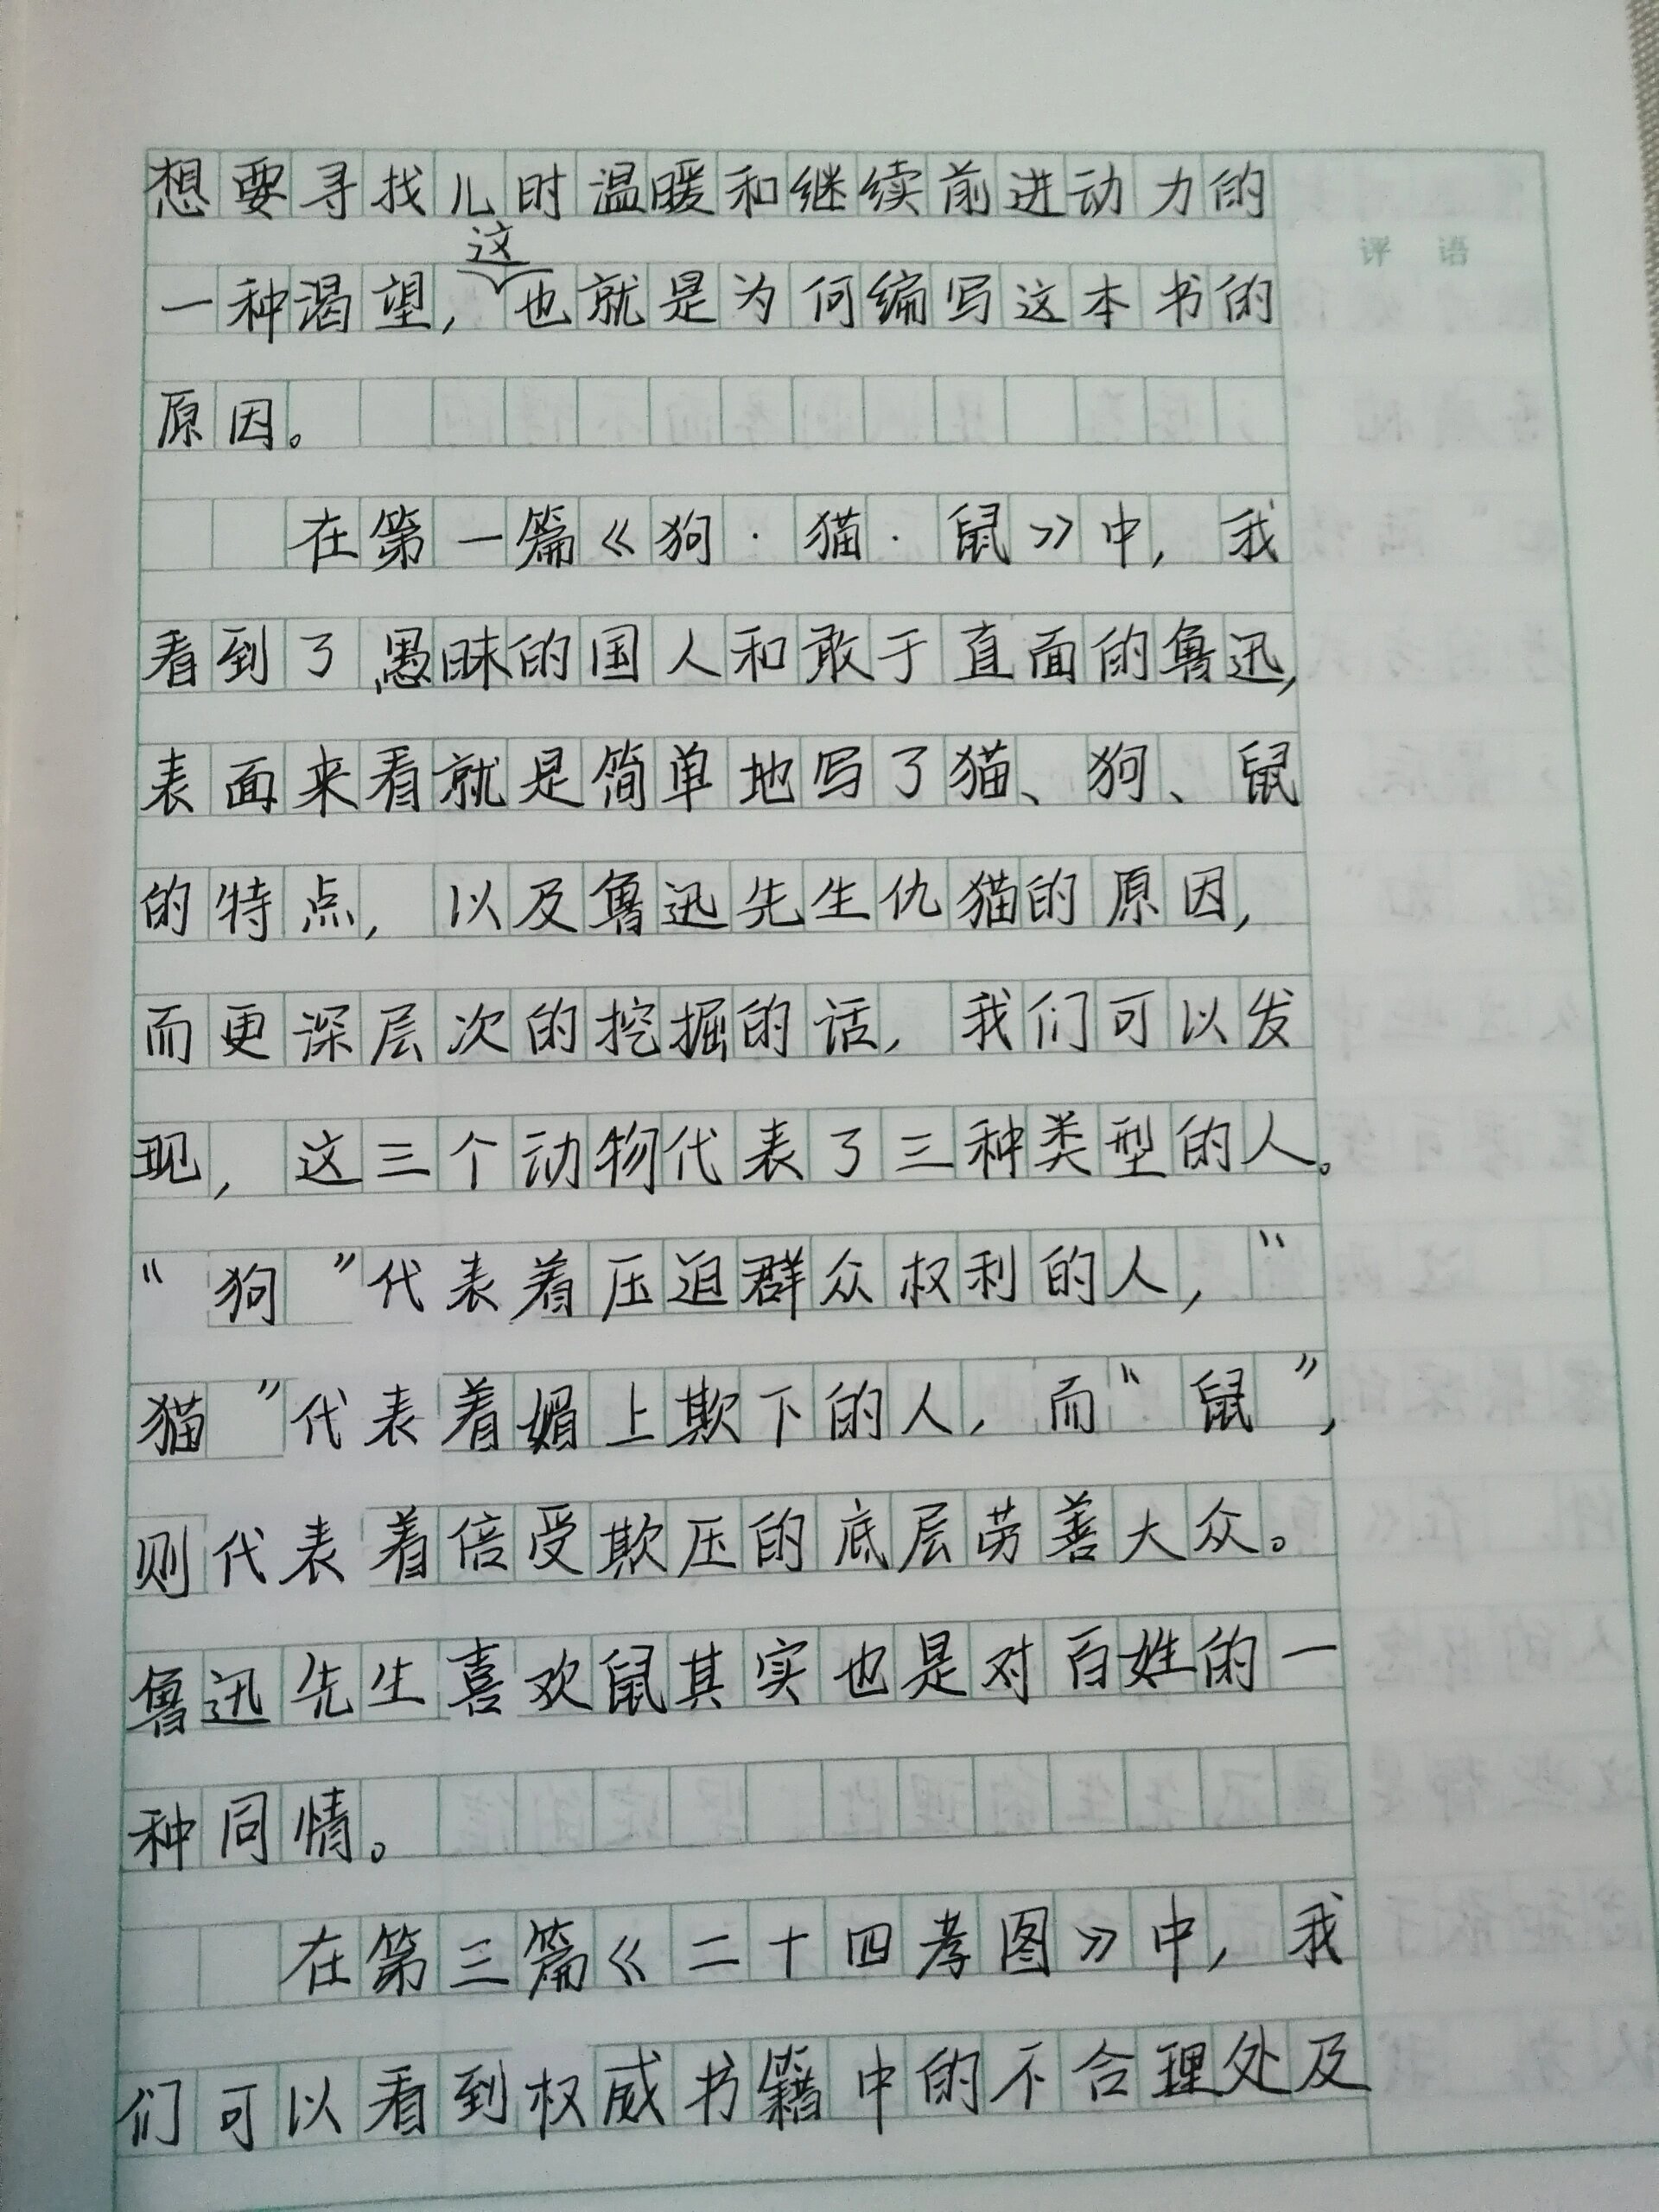 想要寻找儿时温暖和继续前进动力的
一种渴望，这也就是为何编写这本书的
原因。
在第一篇《狗·猫·鼠》中，我
看到了愚昧的国人和敢于直面的鲁迅，
表面来看就是简单地写了猫、狗、鼠
的特点，以及鲁迅先生仇猫的原因，
而更深层次的挖掘的话，我们可以发
现，这三个动物代表了三种类型的人。
“狗”代表着压迫群众权利的人，“
猫”代表着媚上欺下的人，而“鼠”，
则代表着倍受欺压的底层劳善大众。
鲁迅先生喜欢鼠其实也是对百姓的一
种同情。
在第三篇《二十四孝图》中，我
们可以看到权威书籍中的不合理处及
评语